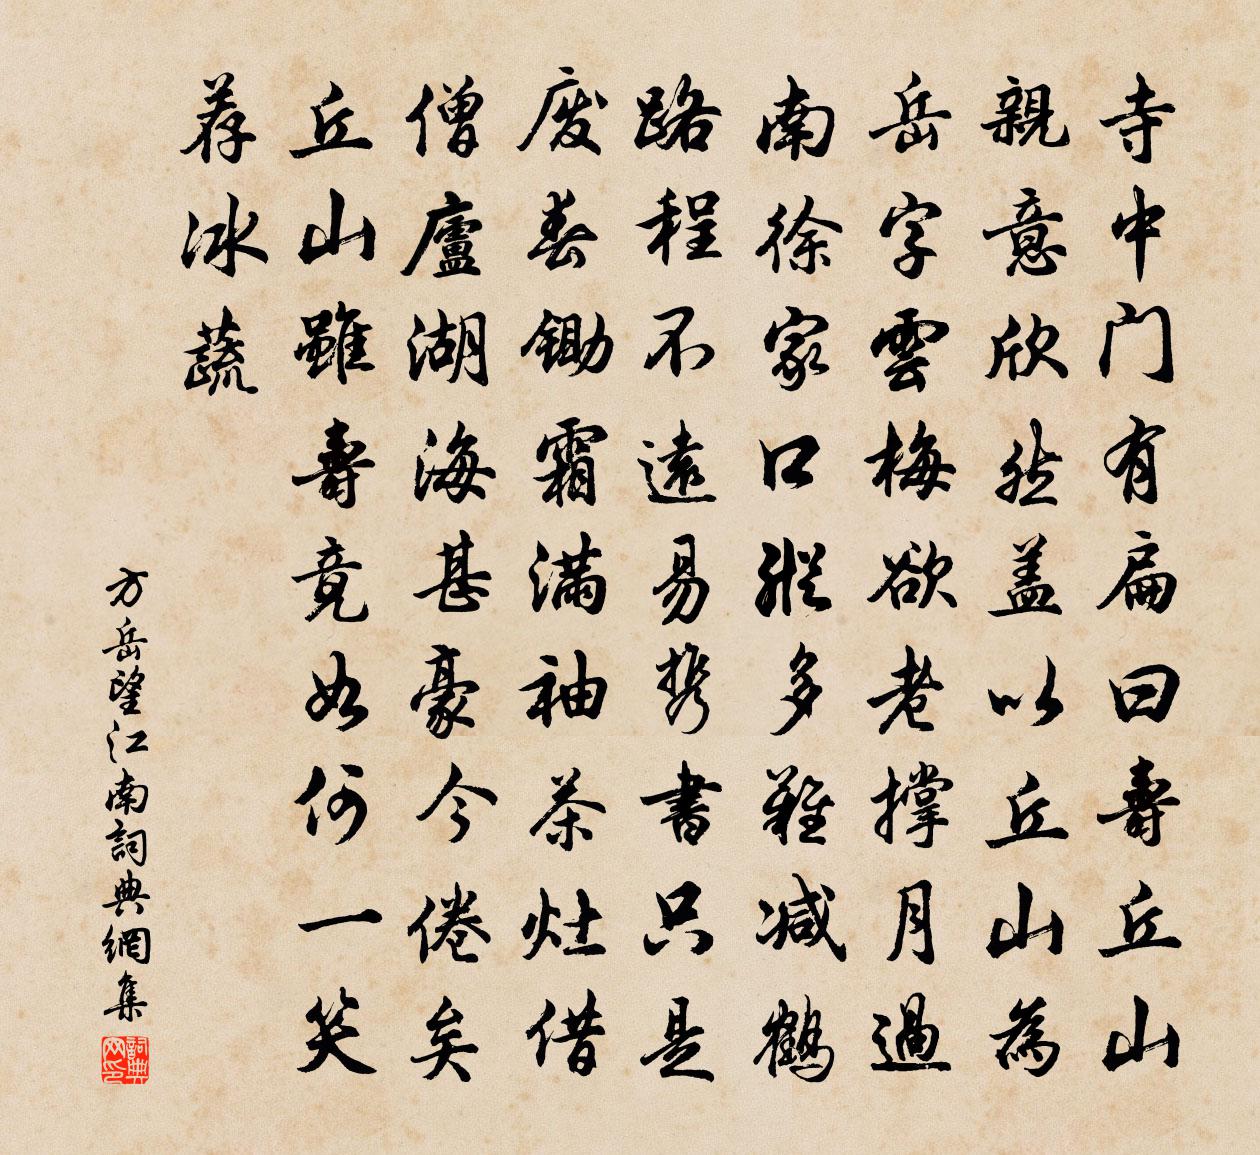 寺中门有扁曰壽丘山
親意欣然盖以丘山為
岳字雲梅欲老撑月過
南徐家口縱多難减鶴
路程不遠易携書只是
废春锄霜滿袖茶灶借
僧廬湖海甚豪今倦矣
丘山雖壽竟如何一笑
荐冰蔬
方岳望江南詞典網集
詞典网印